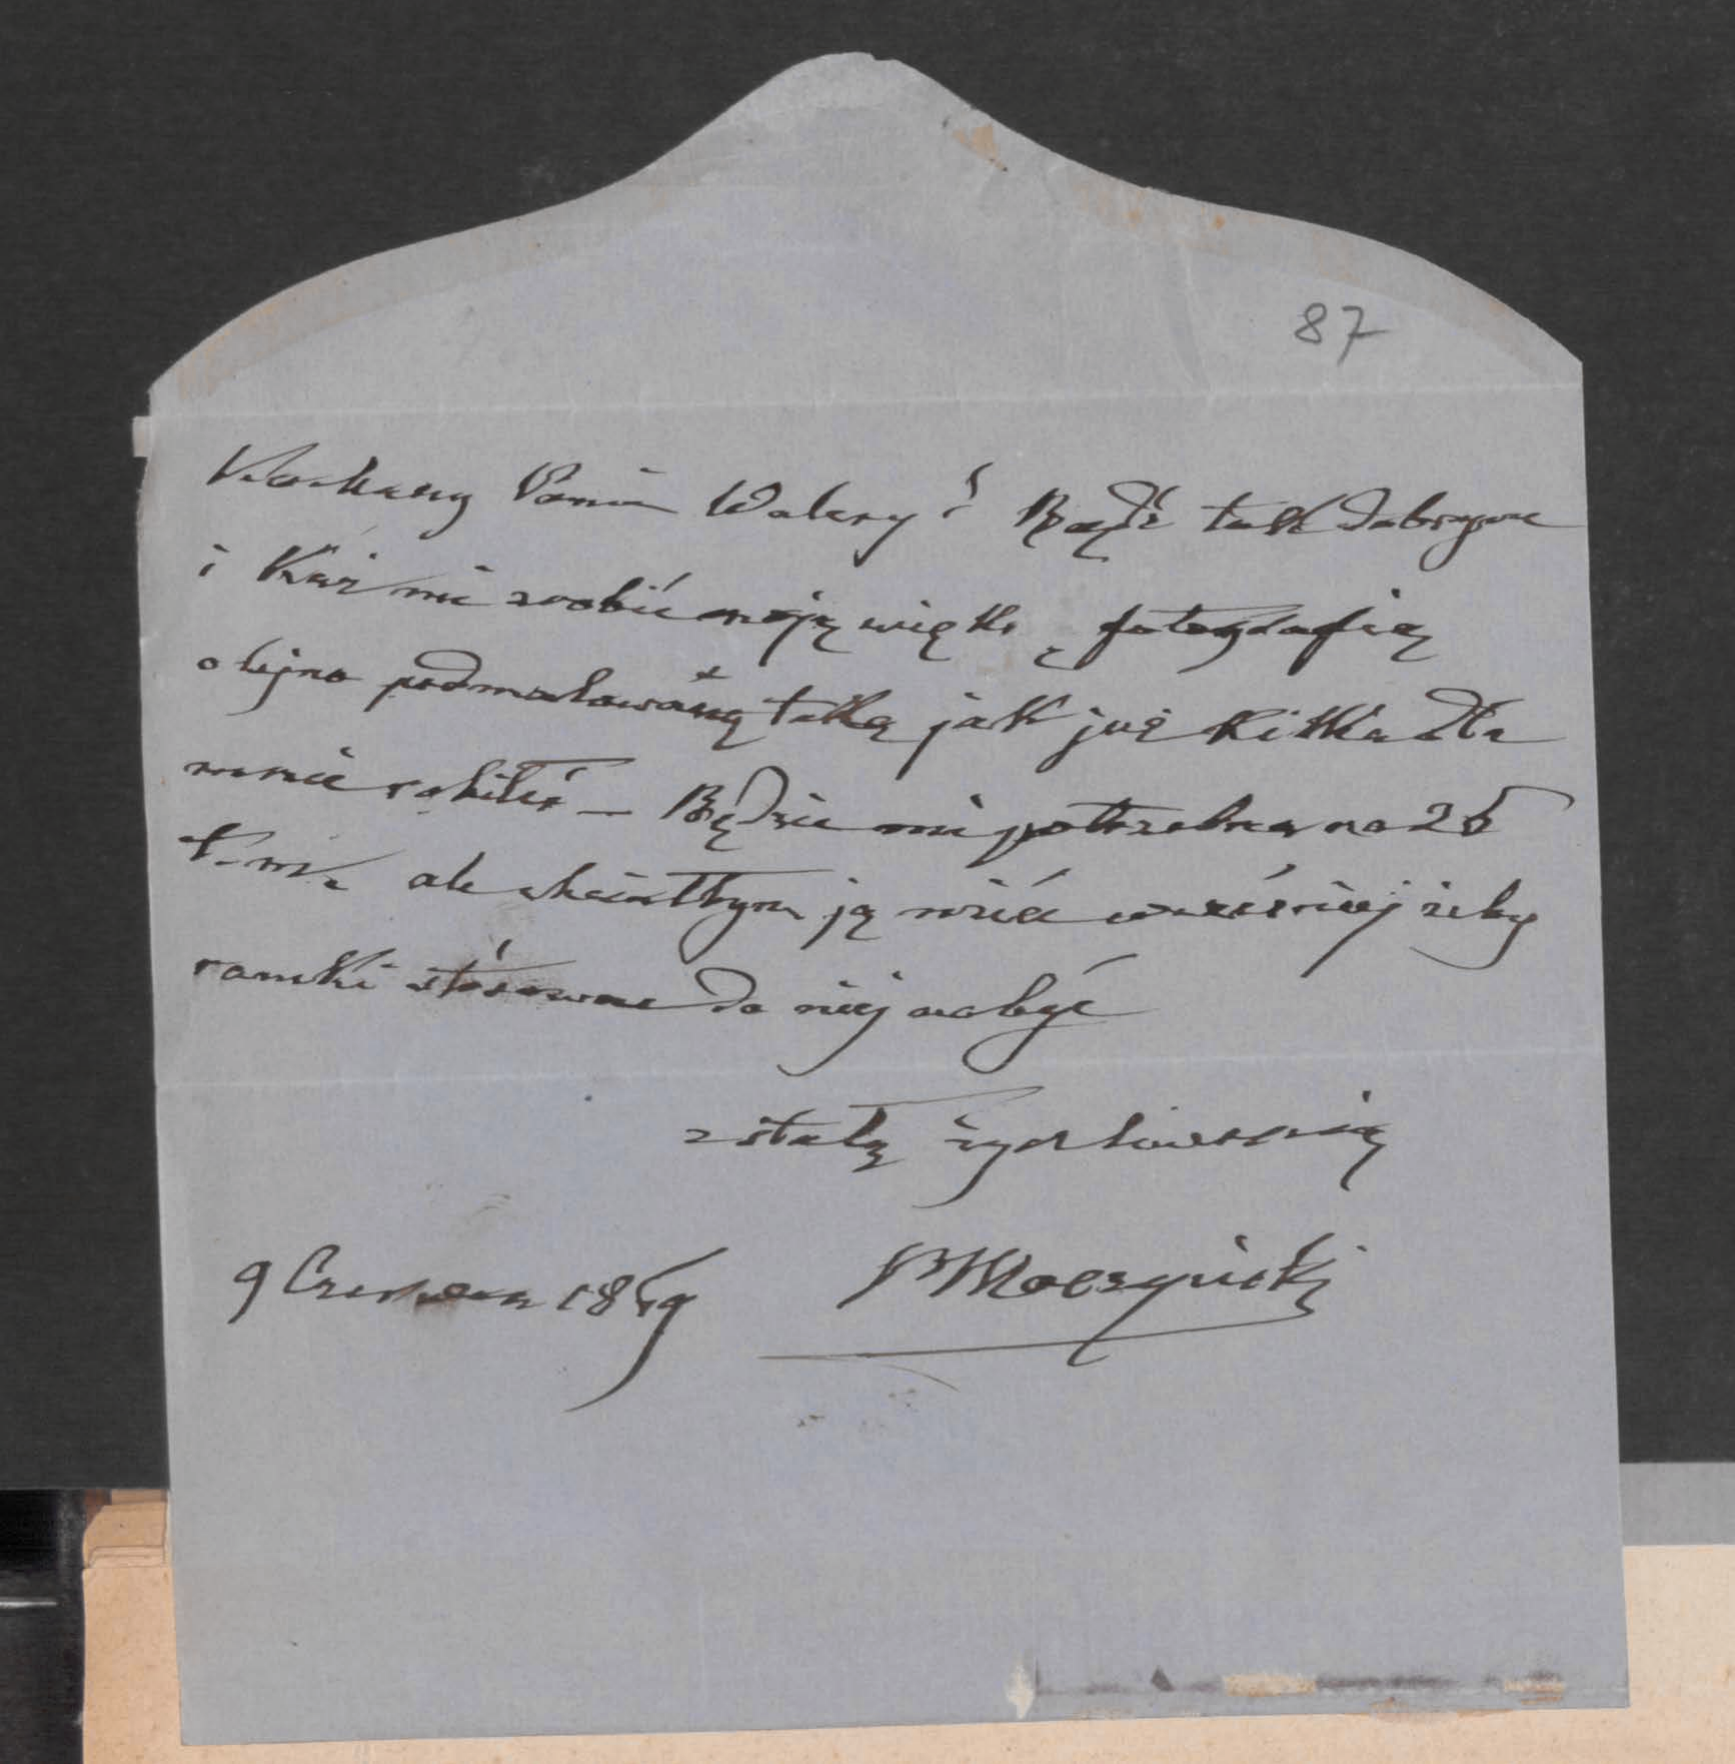 87
Kochany Panie Walery! Bądź tak dobrym
i Każ mi zrobić moją więk. ą fotografią
olejno podmalowaną taką jak już kilka dla
mnie robiłeś — Będzie mi potrzebna na 25
t. m. ale chciałbym ją mieć wcześniej żeby
ramki stósowne do niej nabyć
z stałą życzliwością
9 Czerwca 18